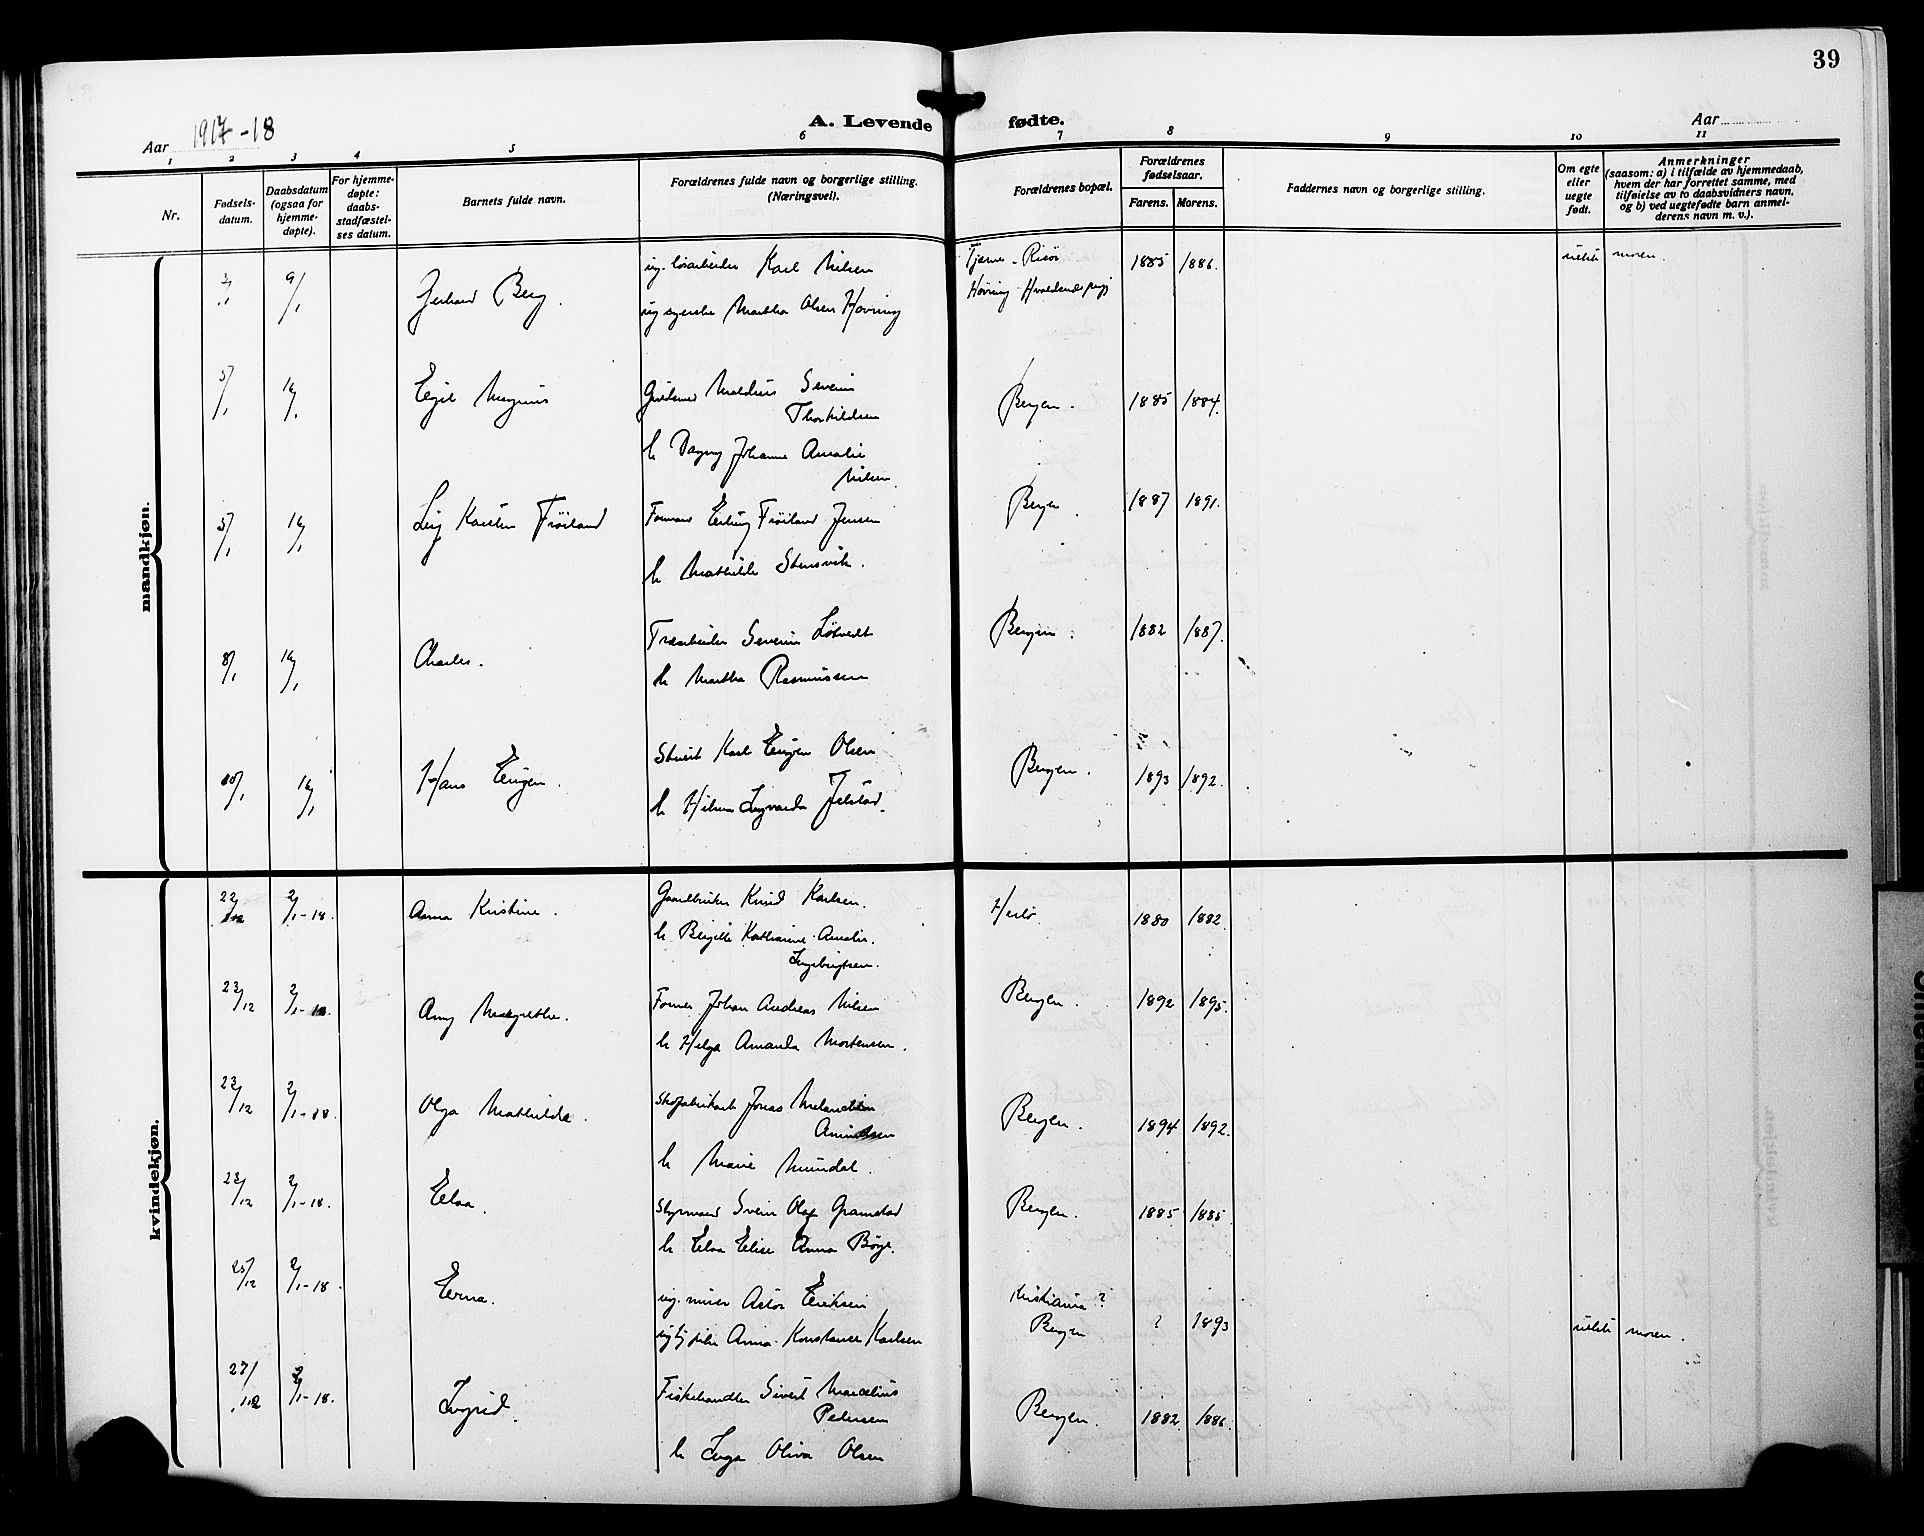 39
A. Levende fødte.
Aar 1917-18
Aar
1 2 3 4 5 6 7 8 9 10 11
Nr.
Fødsels-
datum.
Daabsdatum
(ogsaa for
hjemme-
døpte).
For hjemme-
døpte:
daabs-
stadfæstel-
ses datum.
Barnets fulde navn.
Forældrenes fulde navn og borgerlige stilling.
(Næringsvei).
Forældrenes bopæl.
Forældrenes
fødselsaar.
Farens. Morens.
Faddernes navn og borgerlige stilling.
Om egte
eller
uegte
født.
Anmerkninger
(saasom: a) i tilfælde av hjemmedaab,
hvem der har forrettet samme, med
tilføielse av to daabsvidners navn,
og b) ved uegtefødte barn anmel-
derens navn m. v.).
mandkjøn.
9/1 Gerhard Berg. ug. løsarbeider Karl Nilsen Risør 1885 1886. uekte moren.
ug syerske Martha Olsen Høvring Høvring
5/1 16/1 Egil Magnus Severin Bergen. 1885 1884.
Thorkildsen
h. Dagny Johanne Amalie
Nilsen.
5/1 16/1 Leif Karsten Frøiland Formand Erling Frøiland Jensen Bergen 1887 1891.
h. Mathilde Stensvik.
8/1 16/1 Charles. Træarbeider Severin Løtvedt Bergen. 1882 1887.
h. Martha Rasmussen
10/1 16/1 Hans Eugen. Stuert Karl Eugen Olsen Bergen. 1893 1892.
h. Hilma Ingvarda Jelstad.
kvindekjøn.
22/12 2/1-18. Anna Kristine. Gaardbruker Knud Karlsen. Herlø 1880 1882
h. Birgitte Katharine Amalie.
Ingebrigtsen.
23/12 2/1-18. Any Margrethe. Former Johan Andreas Nilsen Bergen. 1892 1895.
h. Helga Amanda Mortensen.
23/12 2/1-18. Olga Mathilde. Skofabrikarb Jonas Bergen. 1894 1892.
Amundsen
h. Marie Mundal.
23/12 2/1-18. Elsa. Styrmand Svein Olaf Gramstad Bergen. 1885 1885
h. Elsa Elise Anna Bøge.
25/12 2/1-18. Erna. ug. murer Astor Eriksen Kristiania ?
ug tj.pike Anna Konstanse Karlsen Bergen ? 1893 uekte moren.
27/12 2/1-18. Ingrid. Fiskehandler Sivert Marcelius Bergen. 1882 1886.
Pedersen
h. Inga Oliva Olsen